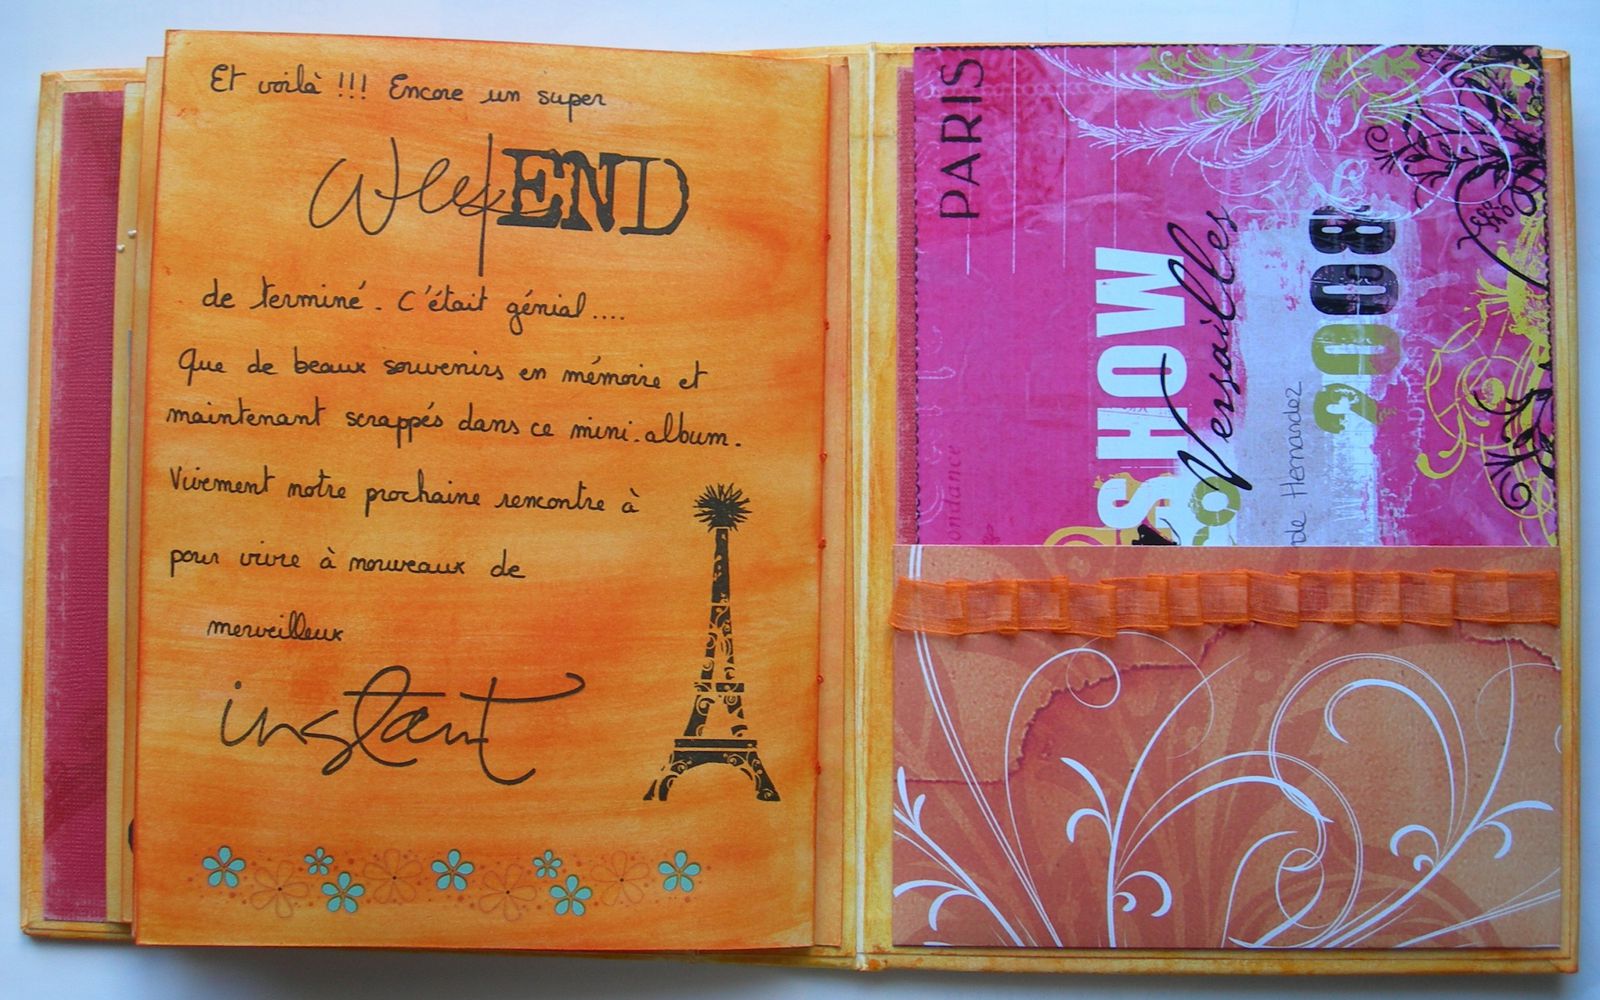 Et voilà !!! Encore un super
weekEND
de terminé. C'était génial....
Que de beaux souvenirs en mémoire et
maintenant scrappés dans ce mini-album.
Vivement notre prochaine rencontre à
pour vivre à nouveaux de
merveilleux
instant
PARIS
SHOW
Versailles
2008
Hernandez